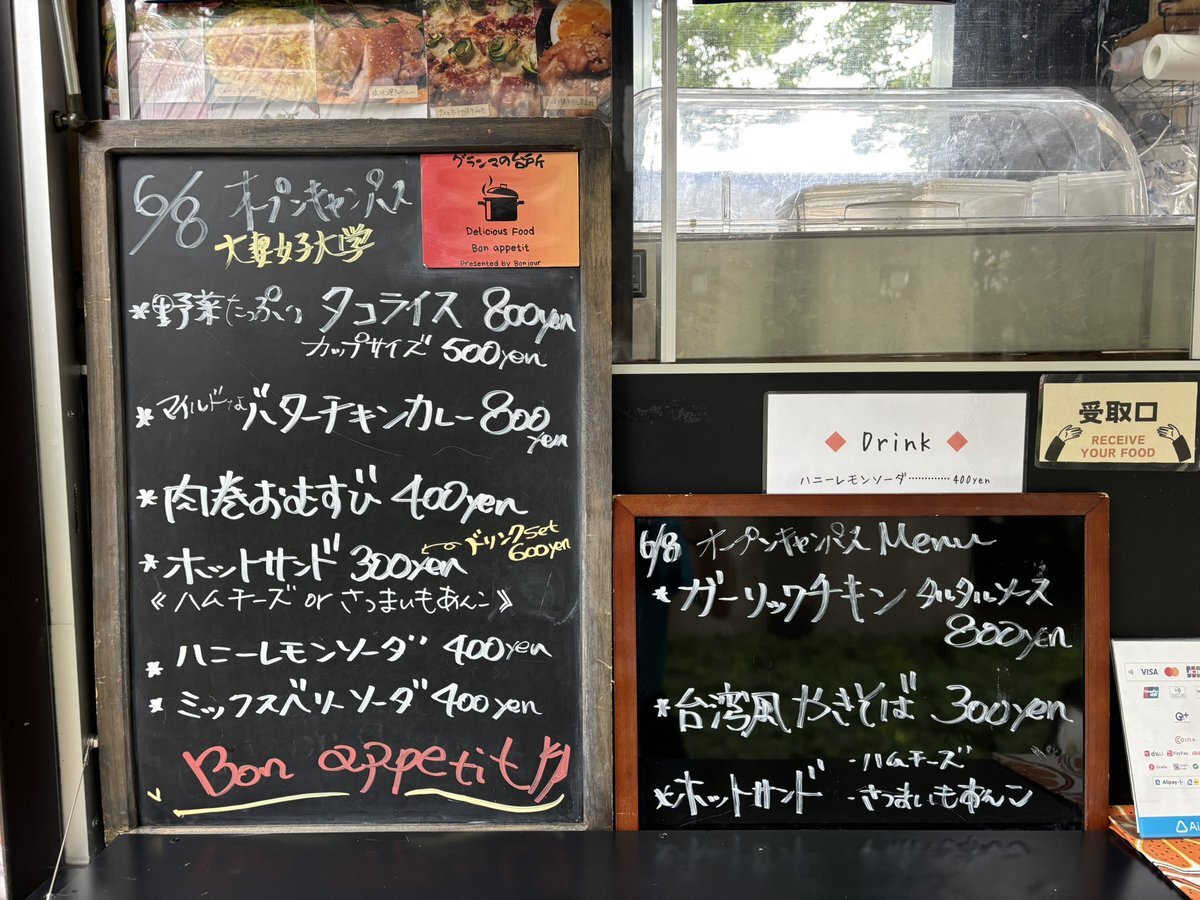 6/8 オープンキャンパス
大妻女子大学
グランマの台所
Delicious Food
Bon appetit
Presented by Bonjour
*野菜たっぷり タコライス 800yen
カップサイズ 500yen
*マイルドなバターチキンカレー 800
yen
*肉巻おむすび 400yen
*ホットサンド 300yen ドリンクset
600yen
《ハムチーズ or さつまいもあんこ》
*ハニーレモンソーダ 400yen
*ミックスベリーソーダ 400yen
Bon appetit!!
受取口
RECEIVE
YOUR FOOD
Drink
ハニーレモンソーダ…………400yen
6/8 オープンキャンパス Menu
*ガーリックチキン タルタルソース
800yen
*台湾風やきそば 300yen
*ホットサンド -ハムチーズ
-さつまいもあんこ
VISA
Coin+
PayPay
Alipay